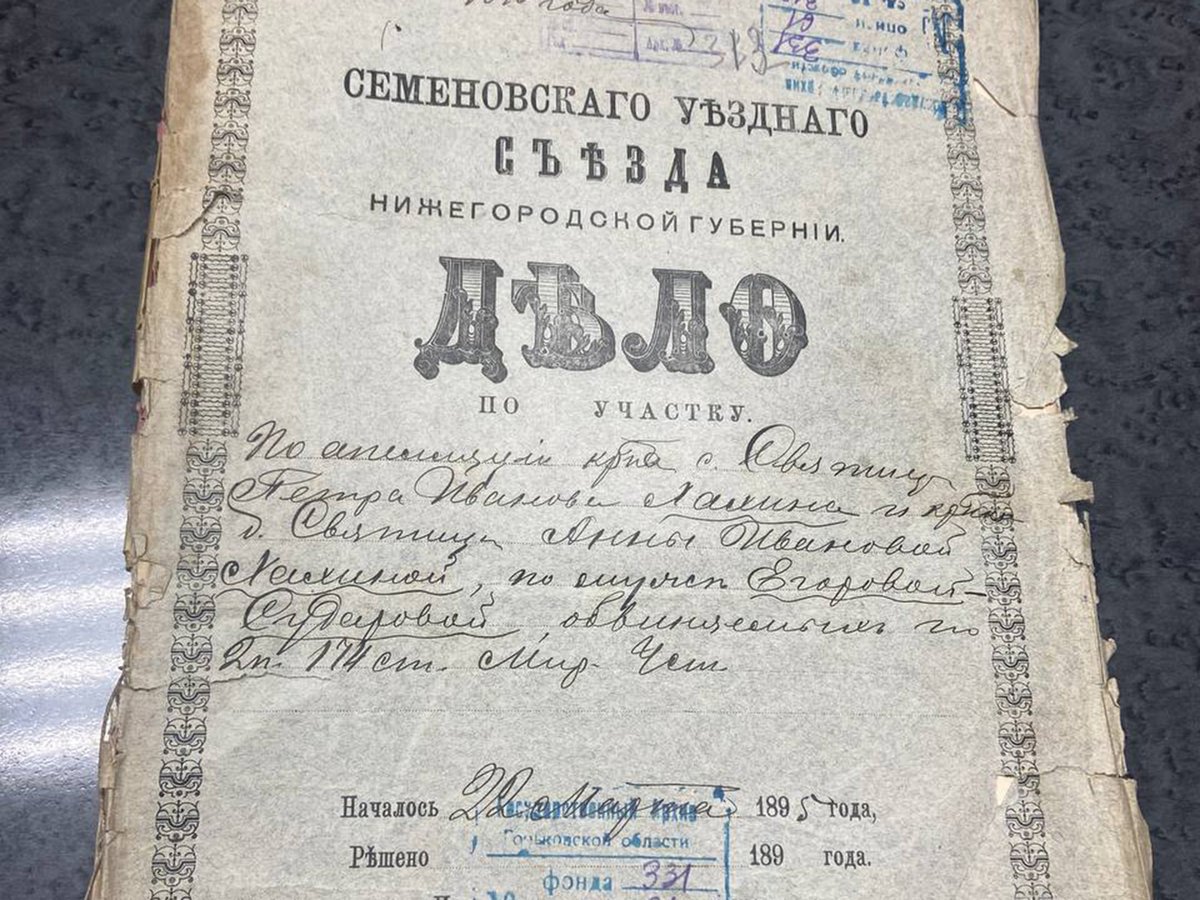 года
СЕМЕНОВСКАГО УѢЗДНАГО
СЪѢЗДА
НИЖЕГОРОДСКОЙ ГУБЕРНІИ.
ДѢЛО
ПО УЧАСТКУ.
По апелляціи кр-на с. Святицъ
Петра Иванова Лахина и кр-ки
д. Святицъ Анны Ивановой
Лахиной, по Егоровой-
Сударовой, обвиняемыхъ по
2 п. 174 ст. Мир. Уст.
Началось 22 Марта 1895 года,
Государственный Архив
Горьковской области
Рѣшено 189 года.
фонда 331